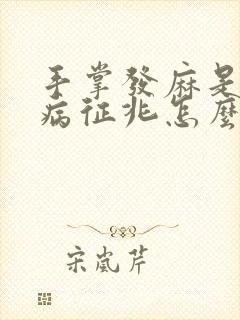 手掌發麻是
病征兆怎麼
宋嵐芹